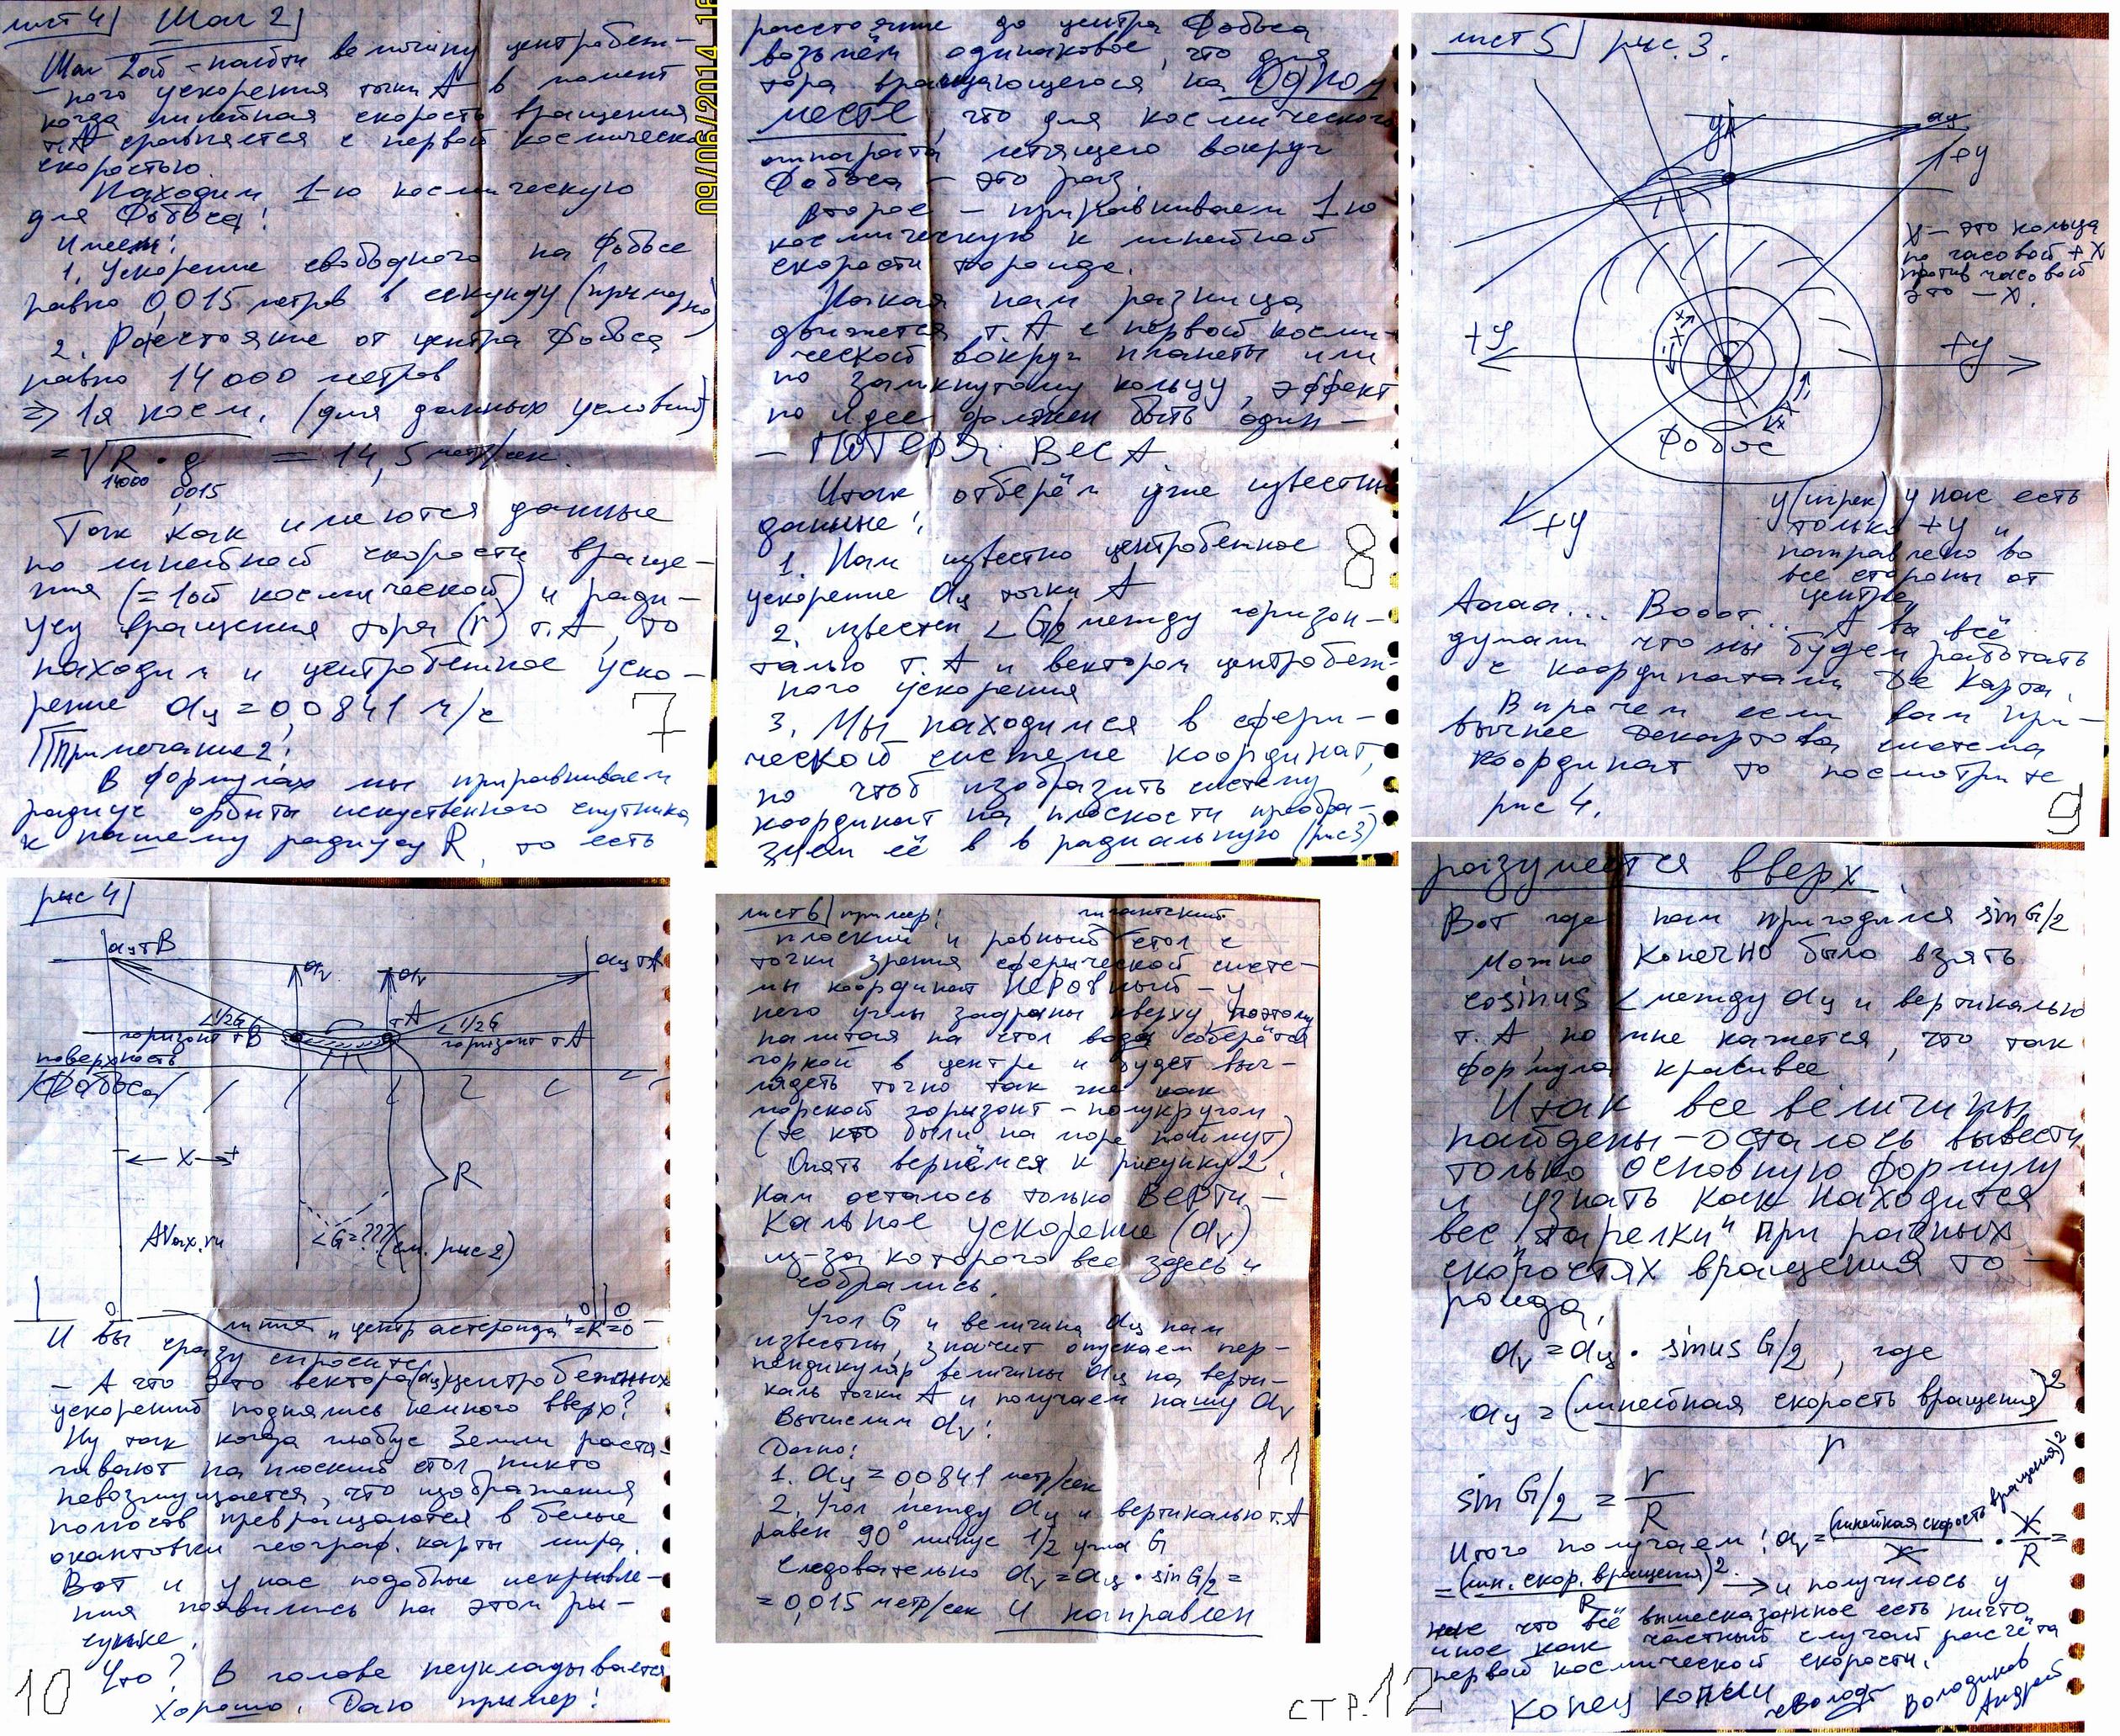 лист 4 Шаг 2
Шаг 2ой – найти величину центробеж-
ного ускорения точки А в момент
когда линейная скорость вращения
т.А сравняется с первой космической
скоростью.
Находим 1-ю космическую
для Фобоса!
Имеем:
1. Ускорение свободного на Фобосе
равно 0,015 метров в секунду (примерно)
2. Расстояние от центра Фобоса
равно 14 000 метров
=> 1я косм. (для данных условий)
= √R · g = 14,5 метр/сек.
14000 0,015
Так как имеются данные
по линейной скорости враще-
ния (= 1ой космической) и ради-
усу вращения тора (r) т.А, то
находим и центробежное уско-
рение αц = 0,0841 м/с
Примечание 2!
В формулах мы приравниваем
радиус орбиты искуственного спутника
к нашему радиусу R, то есть
7
09/06/2014 16
расстояние до центра Фобоса
возьмём одинаковое, что для
тора вращающегося на одном
месте, что для космического
аппарата летящего вокруг
Фобоса – это раз.
Второе – приравниваем 1ю
космическую к линейной
скорости тороида.
Какая нам разница
движется т.А с первой косми-
ческой вокруг планеты или
по замкнутому кольцу, эффект
по идее должен быть один –
– ПОТЕРЯ ВЕСА
Итак отберём уже известные
данные:
1. Нам известно центробежное
ускорение αц точки А
2. известен ∠G/2 между горизон-
талью т.А и вектором центробеж-
ного ускорения
3. Мы находимся в сфери-
ческой системе координат,
но чтоб изобразить систему
координат на плоскости преобра-
зуем её в в радиальную (рис 3)
8
лист 5 рис. 3.
y
αц
+y
x – это кольца
по часовой +x
против часовой
это – x.
+y
+y
-x+
-x+
Фобос
+y
y (игрек) у нас есть
только +y и
направлено во
все стороны от
центра
Агаа... Вооот... А вы всё
думали что мы будем работать
с координатами Декарта.
Впрочем если вам при-
вычнее декартова система
координат то посмотрите
рис 4.
9
рис 4
αц тВ
αv
αv
αц тА
∠1/2G
тА
∠1/2G
горизонт тВ
горизонт тА
поверхность
Фобоса
← x →+
R
AVax.ru
∠G=??? (см. рис 2)
0
0
0
линия "центр астероида" =R=0
И вы сразу спросите
– А что это вектора (αц) центробежных
ускорений поднялись немного вверх?
Ну так когда глобус Земли растя-
гивают на плоский стол никто
невозмущается, что изображения
полюсов превращаются в белые
окантовки географ. карты мира.
Вот и у нас подобные искривле-
ния появились на этом ри-
сунке.
Что? В голове неукладывается
Хорошо. Даю пример!
10
лист 6 пример! гигантский
плоский и ровный стол с
точки зрения сферической систе-
мы координат НЕРОВНЫЙ – у
него углы задраны кверху, поэтому
налитая на стол вода соберётся
горкой в центре и будет выг-
лядеть точно так же как
морской горизонт – полукругом
(те кто были на море поймут)
Опять вернёмся к рисунку 2.
Нам осталось только ВЕРТИ-
КАЛЬНОЕ УСКОРЕНИЕ (αv)
из-за которого все здесь и
собрались.
Угол G и величина αц нам
известны, значит опускаем пер-
пендикуляр величины αц на верти-
каль точки А и получаем нашу αv
Вычислим αv!
Дано:
1. αц = 0,0841 метр/сек
2. Угол между αц и вертикалью т.А
равен 90° минус 1/2 угла G
Следовательно αv = αц · sin G/2 =
= 0,015 метр/сек и направлен
11
разумеется вверх
Вот где нам пригодился sin G/2
Можно конечно было взять
cosinus ∠ между αц и вертикалью
т.А, но мне кажется, что так
формула красивее
Итак все величины
найдены – осталось вывести
только основную формулу
и узнать как находится
вес "тарелки" при разных
скоростях вращения то-
роида,
αv = αц · sinus G/2, где
αц = (линейная скорость вращения)2
r
sin G/2 = r
R
Итого получаем! αv = (линейная скорость вращения)2 · r =
r R
= (лин. скор. вращения)2 → и получилось у
R
что всё вышесказанное есть ничто
иное как частный случай расчёта
первой космической скорости.
Конец копии
Володиков
Андрей
стр. 12